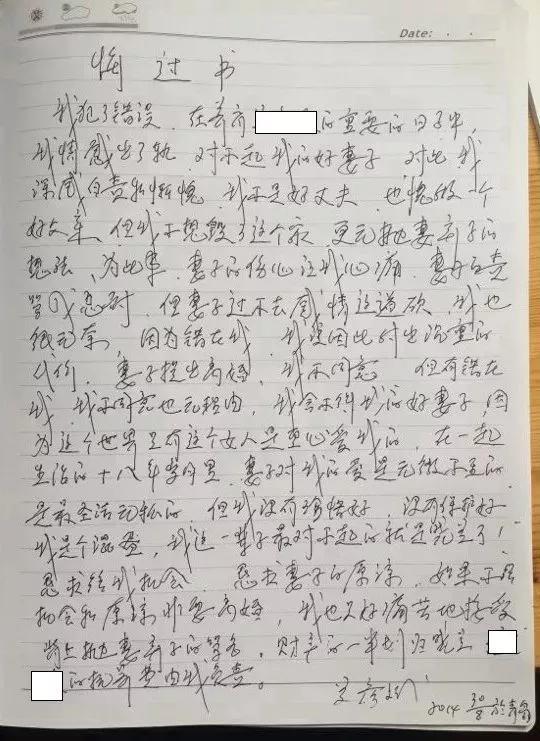 Date: . .
悔 过 书
我犯了错误 在养育 的重要的日子中，
我情感出了轨 对不起我的好妻子 对此我
深感自责和惭愧 我不是好丈夫 也愧做一个
好父亲 但我不想毁了这个家 更无抛妻弃子的
想法，为此事 妻子的伤心让我心痛 妻子
但妻子过不去感情这道砍，我也
很无奈，因为错在我，我要因此付出沉重的
代价，妻子提出离婚，我不同意 但有错在
我，我不同意也无理由，我舍不得我的好妻子，因
为这个世界只有这个女人是真心爱我的，在一起
生活的十八年岁月里，妻子对我的爱是无微不至的
是最圣洁无私的 但我没有珍惜好，没有保护好
我是个混蛋，我这一辈子最对不起的就是 了！
恳求给我机会 恳求妻子的原谅，如果不给
机会和原谅非要离婚，我也只好痛苦地接受
背上抛妻弃子的罪名，财产的一半划归
的抚养费由我负责。
2014 30/8 於青岛